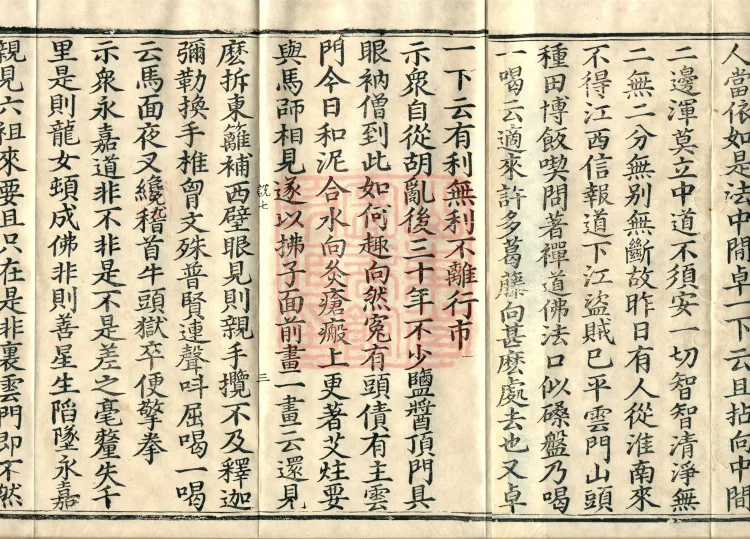 人當依如是法中間卓一下云且拈向中間
二邊渾莫立中道不須安一切智智清淨無
二無二分無別無斷故昨日有人從淮南來
不得江西信報道下江盜賊已平雲門山頭
種田博飯喫問著禪道佛法口似磉盤乃喝
一喝云適來許多葛藤向甚麽處去也又卓
一下云有利無利不離行市
示衆自從胡亂後三十年不少鹽醬頂門具
眼衲僧到此如何趣向然寃有頭債有主雲
門今日和泥合水向灸瘡瘢上更著艾炷要
與馬師相見遂以拂子面前畫一畫云還見
説七 三
麽拆東籬補西壁眼見則親手攬不及釋迦
彌勒換手椎胷文殊普賢連聲呌屈喝一喝
云馬面夜叉纔稽首牛頭獄卒便擎拳
示衆永嘉道非不非是不是差之毫釐失千
里是則龍女頓成佛非則善星生陷墜永嘉
親見六祖來要且只在是非裏雲門即不然